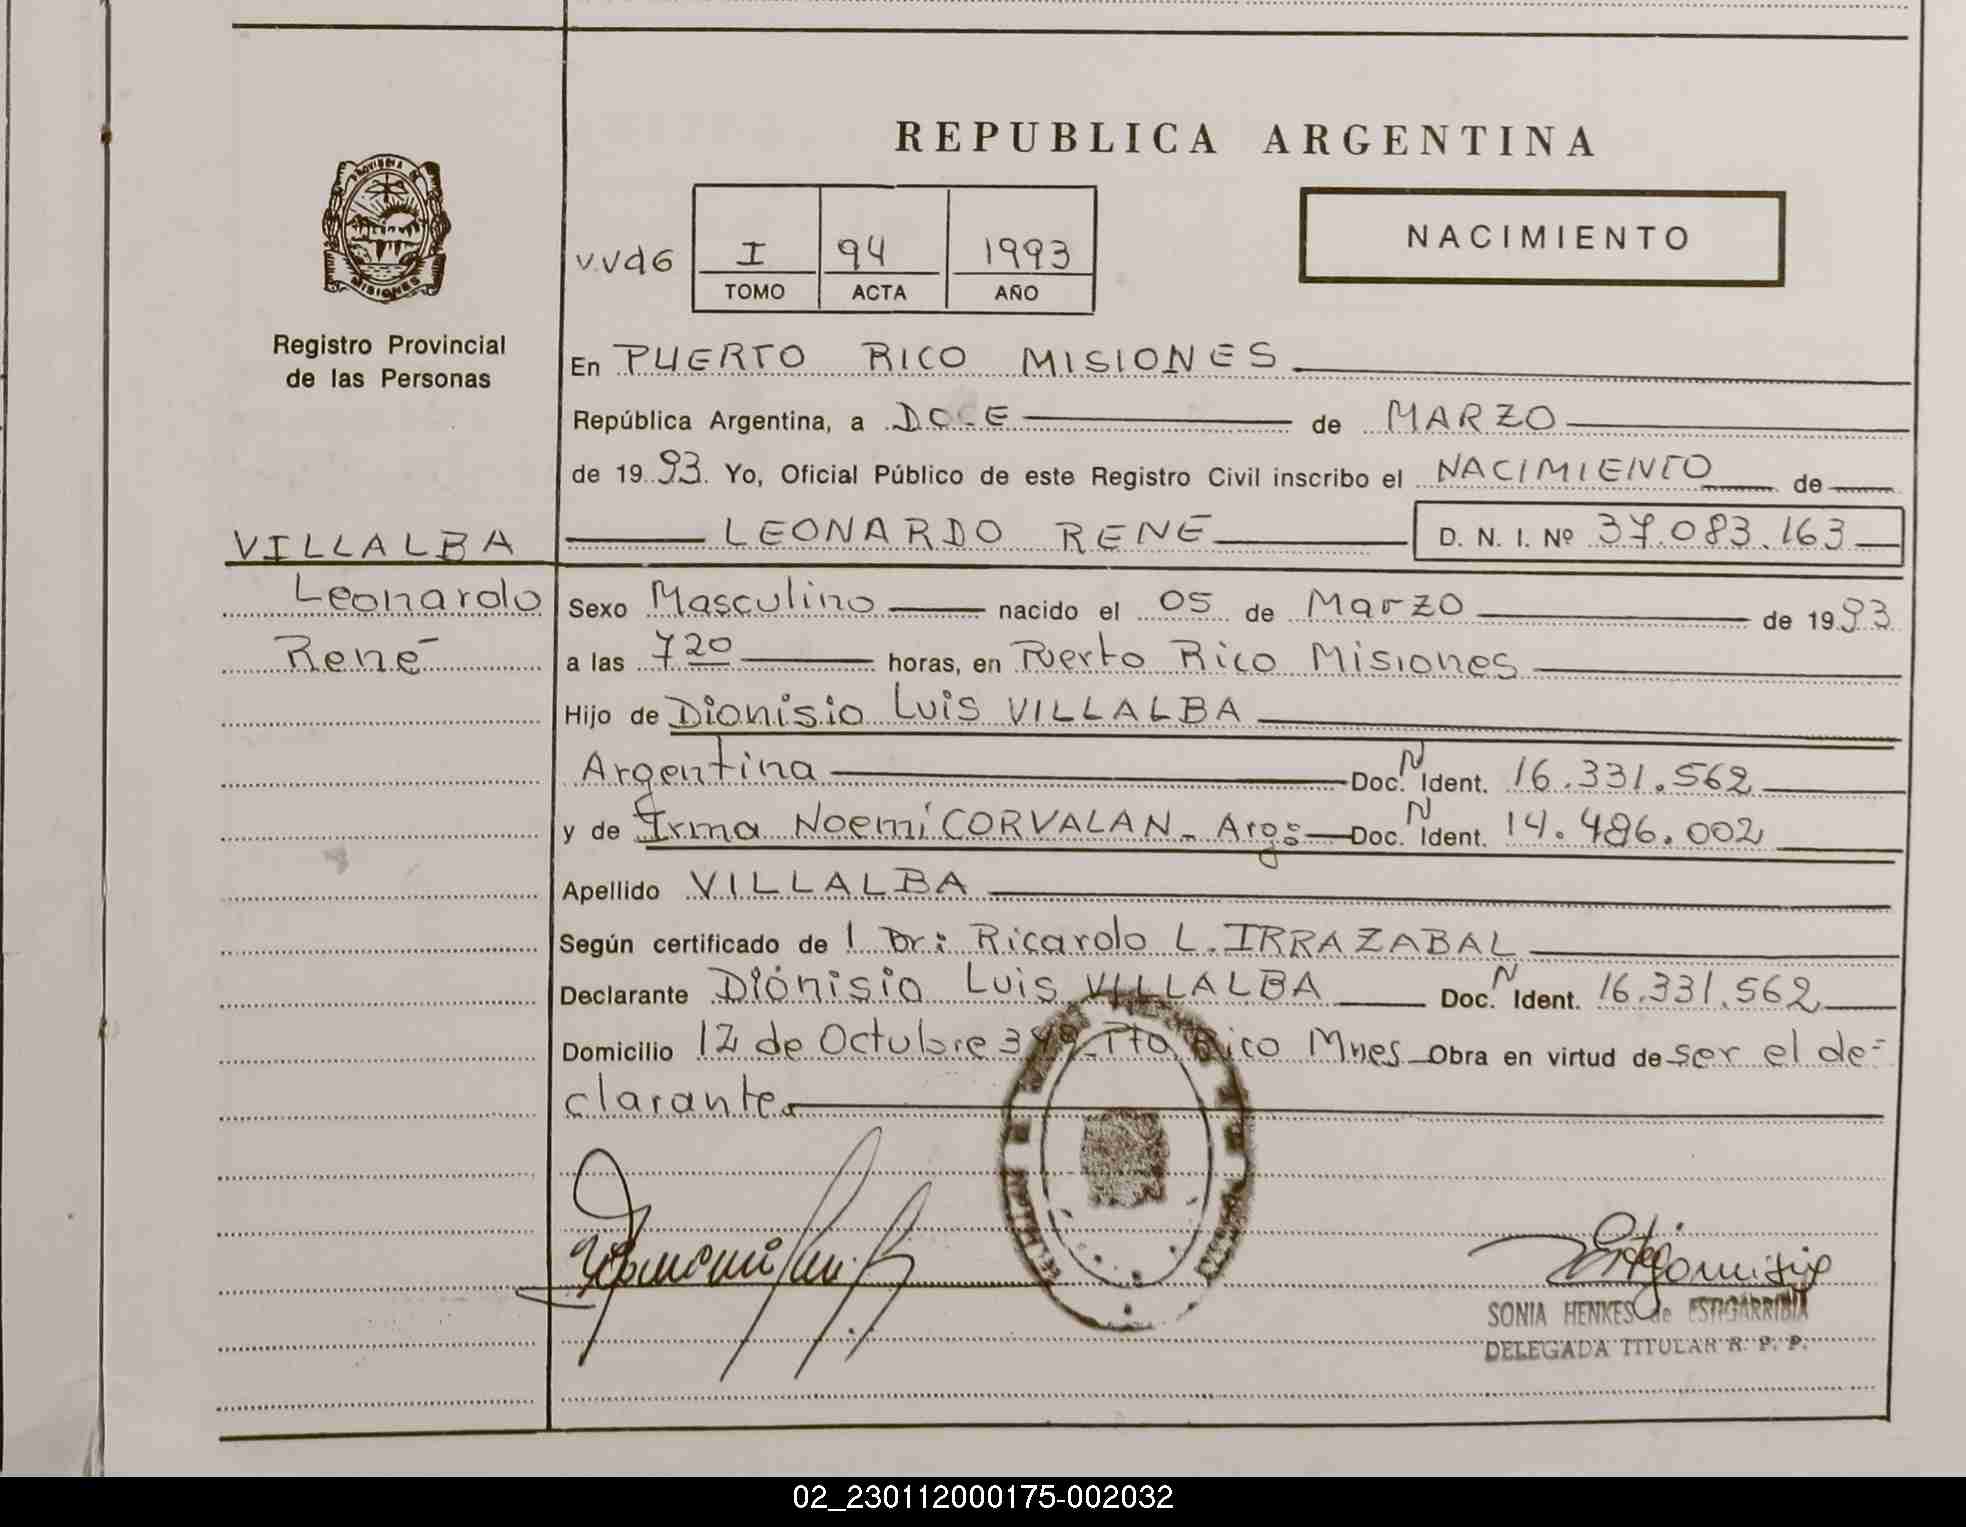 REPUBLICA ARGENTINA
PROVINCIA DE
MISIONES
Registro Provincial
de las Personas
vvd6
I 94 1993
TOMO ACTA AÑO
NACIMIENTO
En PUERTO RICO MISIONES
República Argentina, a DOCE de MARZO
de 1993. Yo, Oficial Público de este Registro Civil inscribo el NACIMIENTO de
VILLALBA LEONARDO RENÉ D. N. I. Nº 37.083.163
Leonardo Sexo Masculino nacido el 05 de Marzo de 1993
René a las 7 20 horas, en Puerto Rico Misiones
Hijo de Dionisio Luis VILLALBA
Argentina Doc. N Ident. 16.331.562
y de Irma Noemí CORVALAN - Arg: Doc. N Ident. 14.486.002
Apellido VILLALBA
Según certificado de l Dr: Ricardo L. IRRAZABAL
Declarante Dionisio Luis VILLALBA Doc. N Ident. 16.331.562
Domicilio 12 de Octubre Pto Rico Mnes Obra en virtud de ser el de-
clarante
SONIA HENKES de ESTIGARRIBIA
DELEGADA TITULAR R. P. P.
02_230112000175-002032